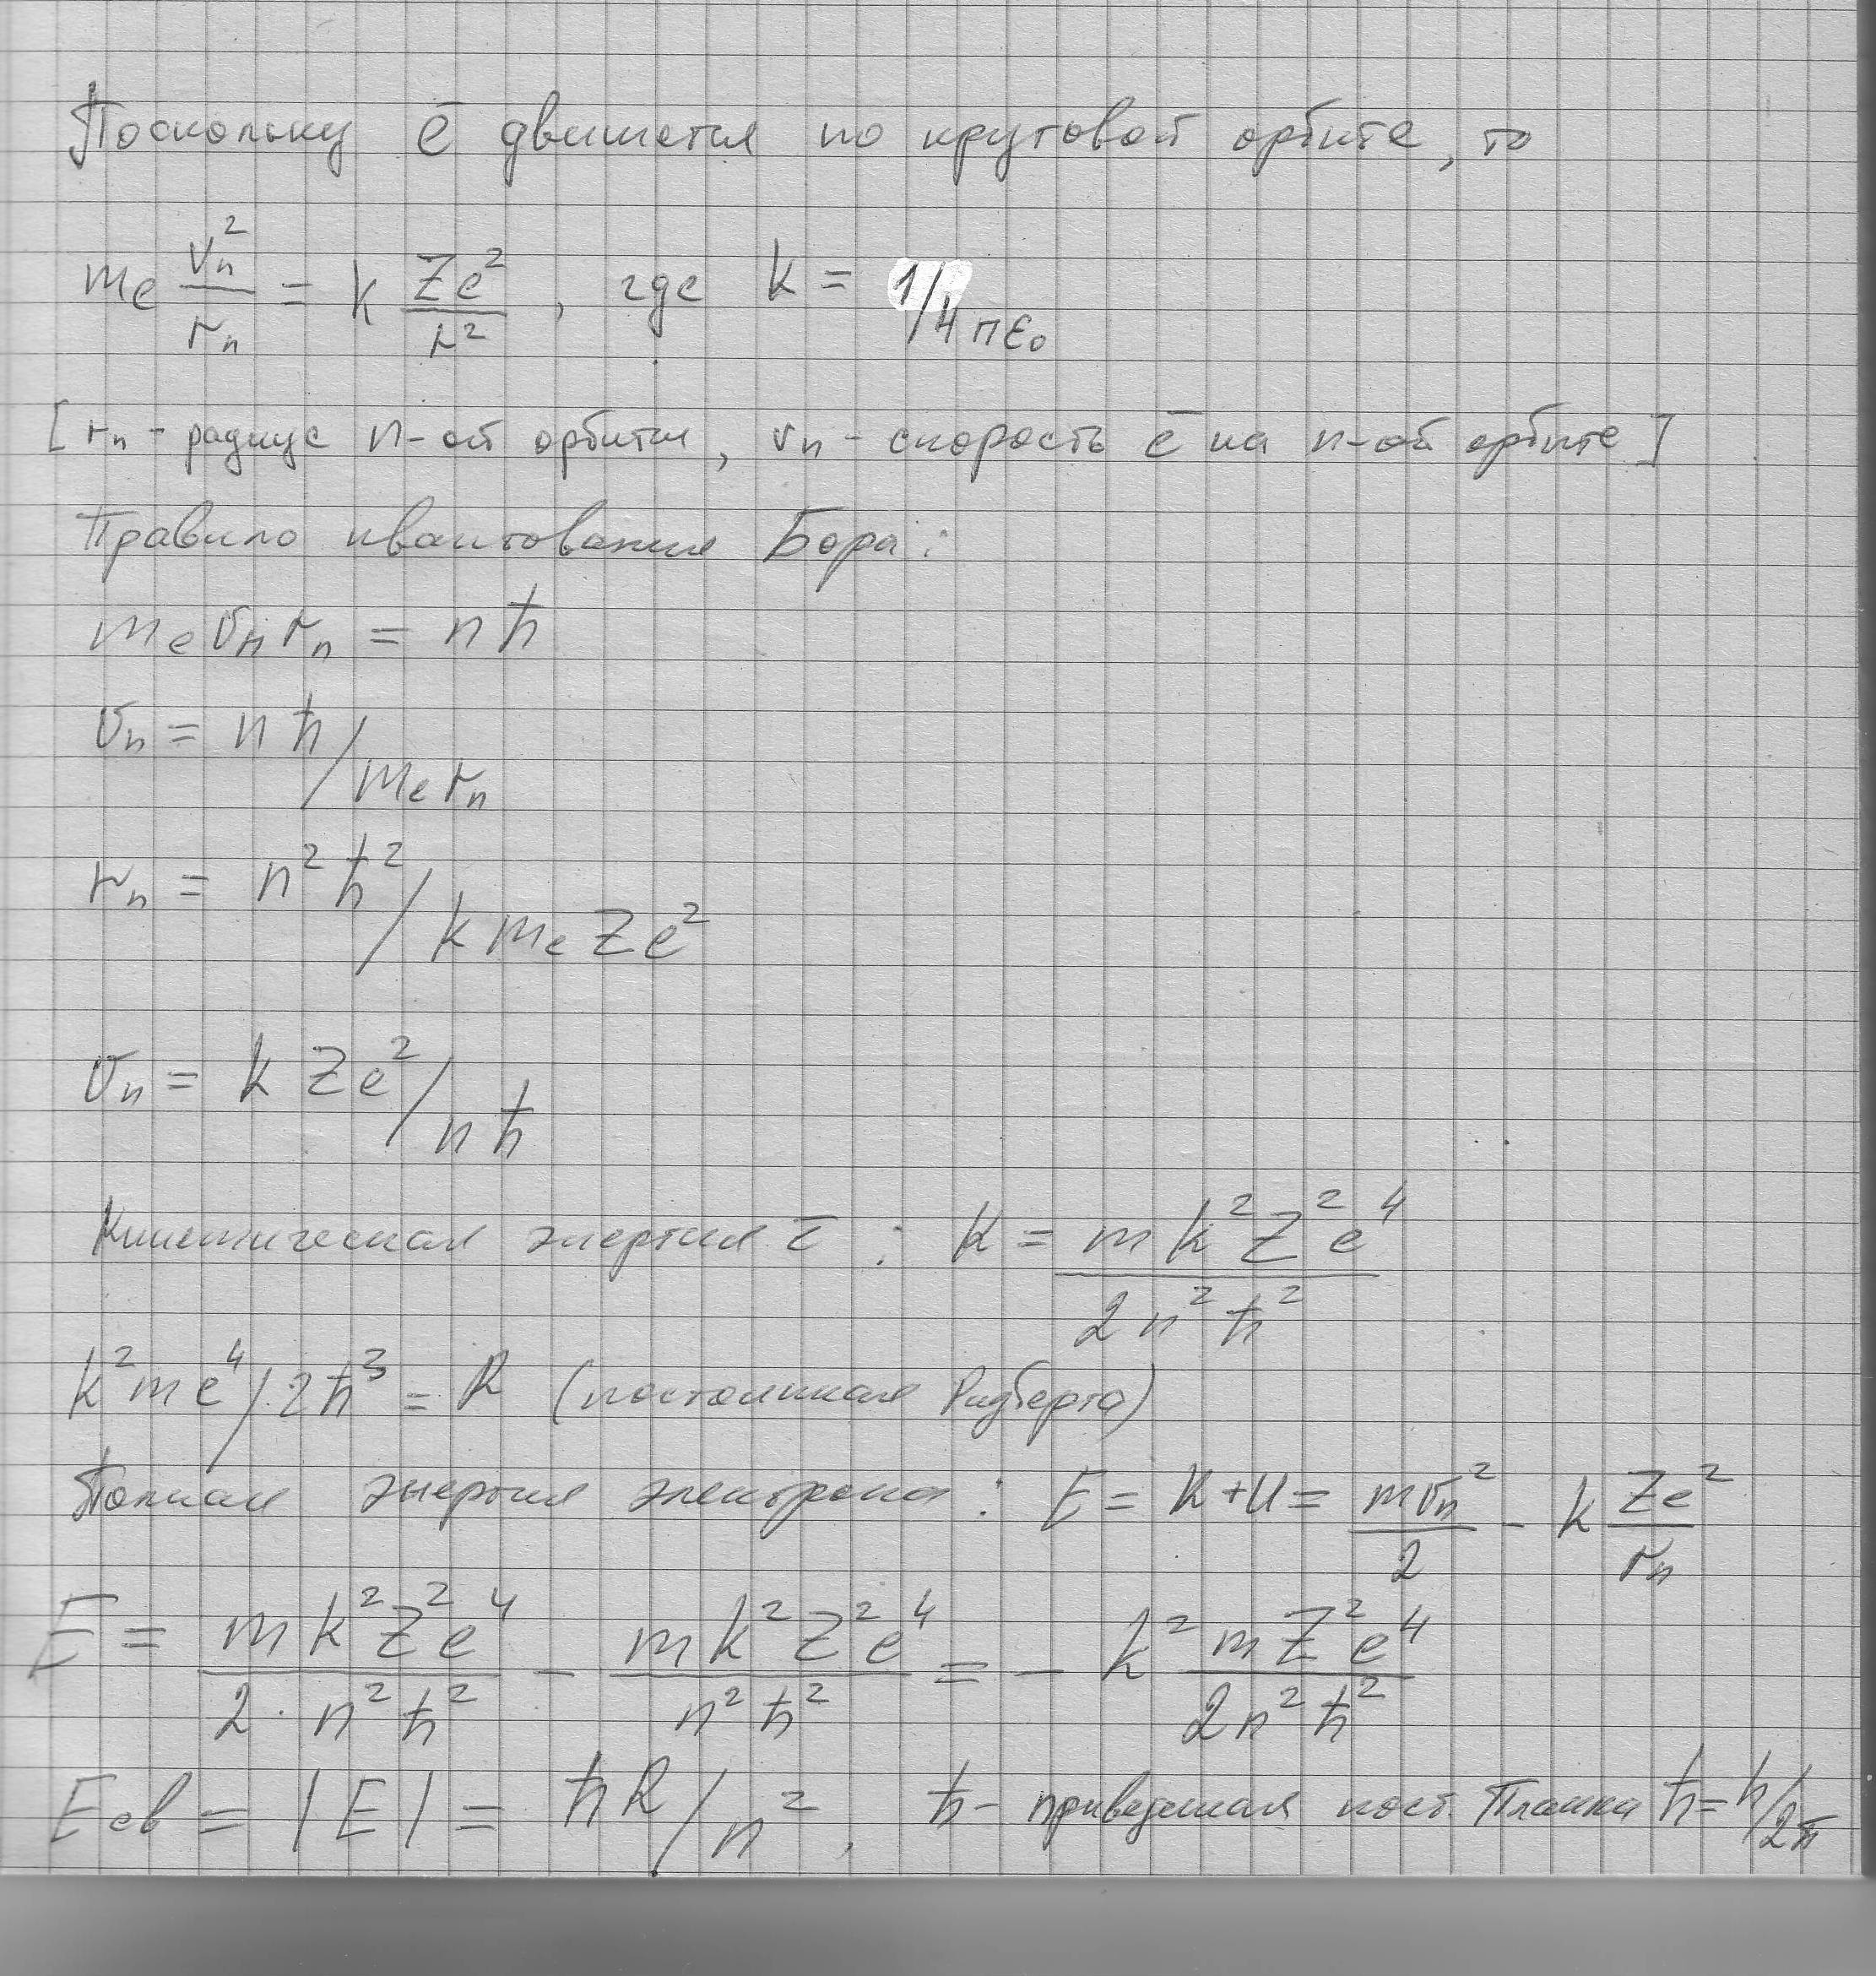 Поскольку ē движется по круговой орбите, то
mₑ vₙ²/rₙ = k Ze²/r², где k = 1/4πε₀
[rₙ - радиус n-ой орбиты, vₙ - скорость ē на n-ой орбите]
Правило квантования Бора:
mₑvₙrₙ = nħ
vₙ = nħ/mₑrₙ
rₙ = n²ħ²/kmₑZe²
vₙ = kZe²/nħ
Кинетическая энергия ē : K = mk²Z²e⁴/2n²ħ²
k²me⁴/2ħ³ = R (постоянная Ридберга)
Полная энергия электрона: E = K+U = mvₙ²/2 - k Ze²/rₙ
E = mk²Z²e⁴/2·n²ħ² - mk²Z²e⁴/n²ħ² = - k² mZ²e⁴/2n²ħ²
Eсв = |E| = ħR/n², ħ - приведенная пост. Планка ħ=h/2π